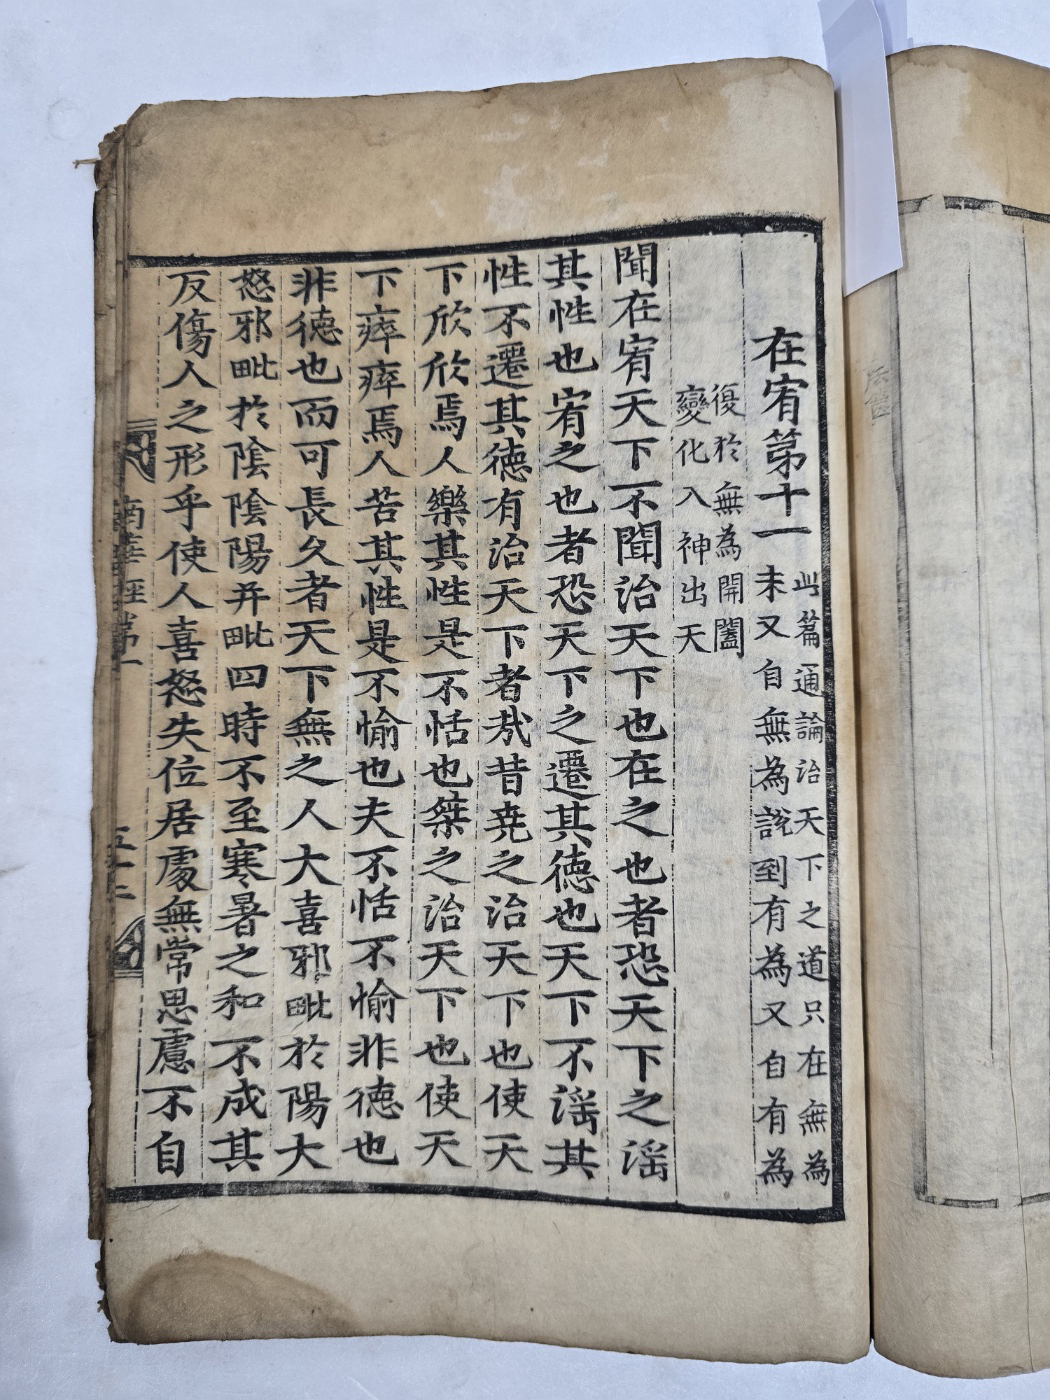 在宥第十一
此篇通論治天下之道只在無為
未又自無為說到有為又自有為
復於無為開闔
變化入神出天
聞在宥天下不聞治天下也在之也者恐天下之滛
其性也宥之也者恐天下之遷其德也天下不滛其
性不遷其德有治天下者㢤昔堯之治天下也使天
下欣欣焉人樂其性是不恬也桀之治天下也使天
下瘁瘁焉人苦其性是不愉也夫不恬不愉非德也
非德也而可長久者天下無之人大喜邪毗於陽大
怒邪毗於陰陰陽并毗四時不至寒暑之和不成其
反傷人之形乎使人喜怒失位居處無常思慮不自
南華經第一
五十二